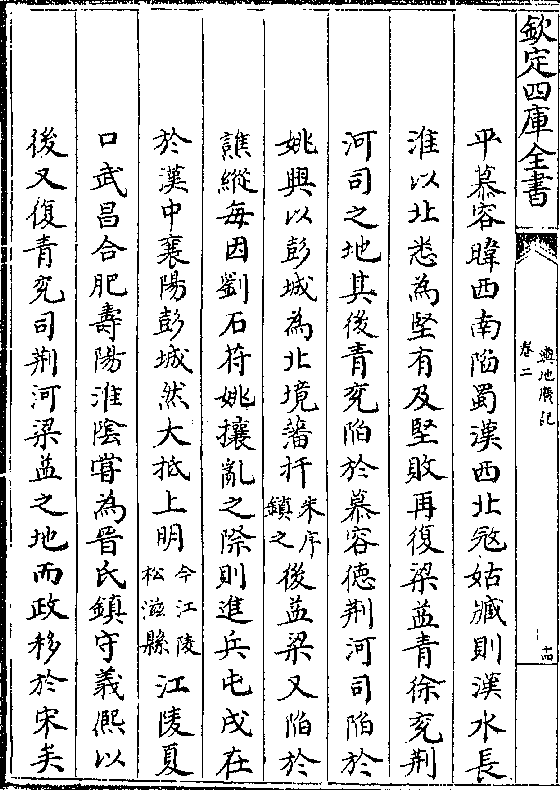 欽定四庫全書
輿地廣記
卷二
十四
平慕容暐西南陷蜀漢西北尅姑臧則漢水長
淮以北悉為堅有及堅敗再復梁益青徐兗荆
河司之地其後青兗陷於慕容德荆河司陷於
姚興以彭城為北境藩扞朱序鎮之後益梁又陷於
譙縱每因劉石苻姚攘亂之際則進兵屯戍在
於漢中襄陽彭城然大抵上明今江陵松滋縣江陵夏
口武昌合肥壽陽淮陰甞為晉氏鎮守義熙以
後又復青兗司荆河梁益之地而政移於宋矣